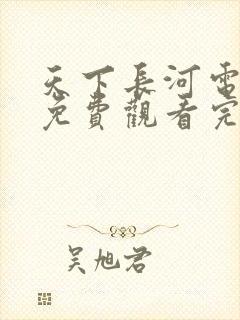 天下長河電
免費觀看完
吴旭君